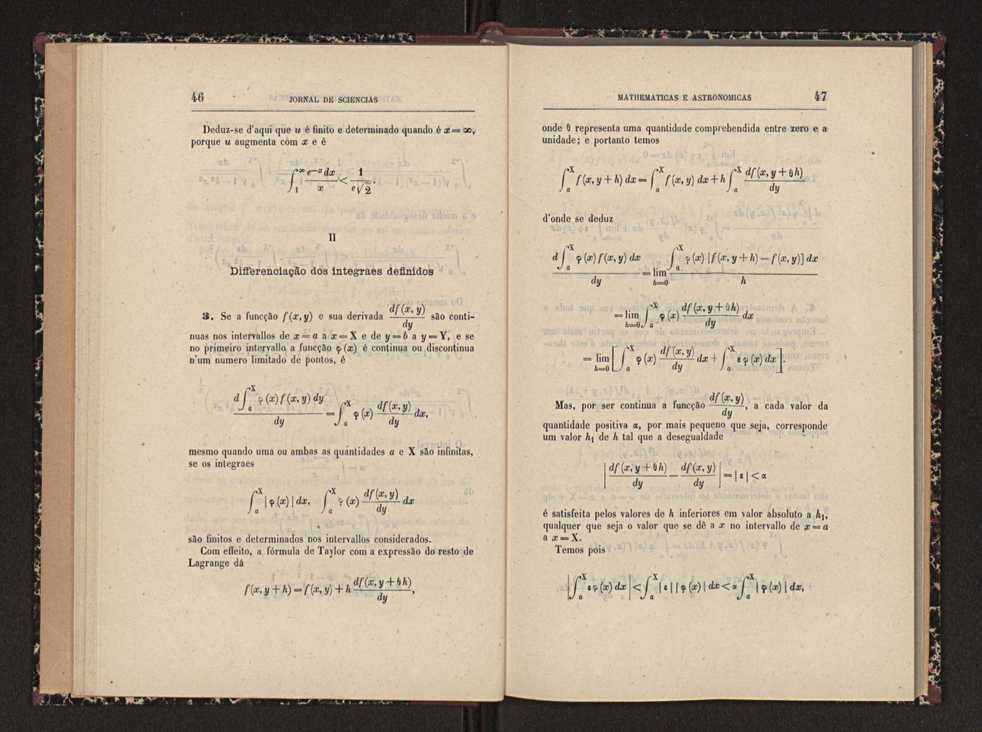 46 JORNAL DE SCIENCIAS
Deduz-se d'aqui que u é finito e determinado quando é x=∞,
porque u augmenta com x e é
∫₁^∞ e^{-x} dx / x < 1 / (e √2).
II
Differenciação dos integraes definidos
3. Se a funcção f(x, y) e sua derivada df(x, y)/dy são conti-
nuas nos intervallos de x=a a x=X e de y=b a y=Y, e se
no primeiro intervallo a funcção φ(x) é continua ou discontinua
n'um numero limitado de pontos, é
d∫_a^X φ(x) f(x, y) dy / dy = ∫_a^X φ(x) df(x, y)/dy dx,
mesmo quando uma ou ambas as quantidades a e X são infinitas,
se os integraes
∫_a^X |φ(x)| dx, ∫_a^X φ(x) df(x, y)/dy dx
são finitos e determinados nos intervallos considerados.
Com effeito, a fórmula de Taylor com a expressão do resto de
Lagrange dá
f(x, y+h)=f(x, y)+h df(x, y+θh)/dy,
MATHEMATICAS E ASTRONOMICAS 47
onde θ representa uma quantidade comprehendida entre zero e a
unidade; e portanto temos
∫_a^X f(x, y+h) dx=∫_a^X f(x, y) dx+h∫_a^X df(x, y+θh)/dy
d'onde se deduz
d∫_a^X φ(x) f(x, y) dx / dy = lim_{h=0} ∫_a^X φ(x) [f(x, y+h)−f(x, y)] dx / h
= lim_{h=0} ∫_a^X φ(x) df(x, y+θh)/dy dx
= lim_{h=0} [∫_a^X φ(x) df(x, y)/dy dx + ∫_a^X ε φ(x) dx].
Mas, por ser continua a funcção df(x, y)/dy, a cada valor da
quantidade positiva α, por mais pequeno que seja, corresponde
um valor h₁ de h tal que a desegualdade
|df(x, y+θh)/dy − df(x, y)/dy| = |ε| < α
é satisfeita pelos valores de h inferiores em valor absoluto a h₁,
qualquer que seja o valor que se dê a x no intervallo de x=a
a x=X.
Temos pois
|∫_a^X ε φ(x) dx| < ∫_a^X |ε| |φ(x)| dx < α ∫_a^X |φ(x)| dx,